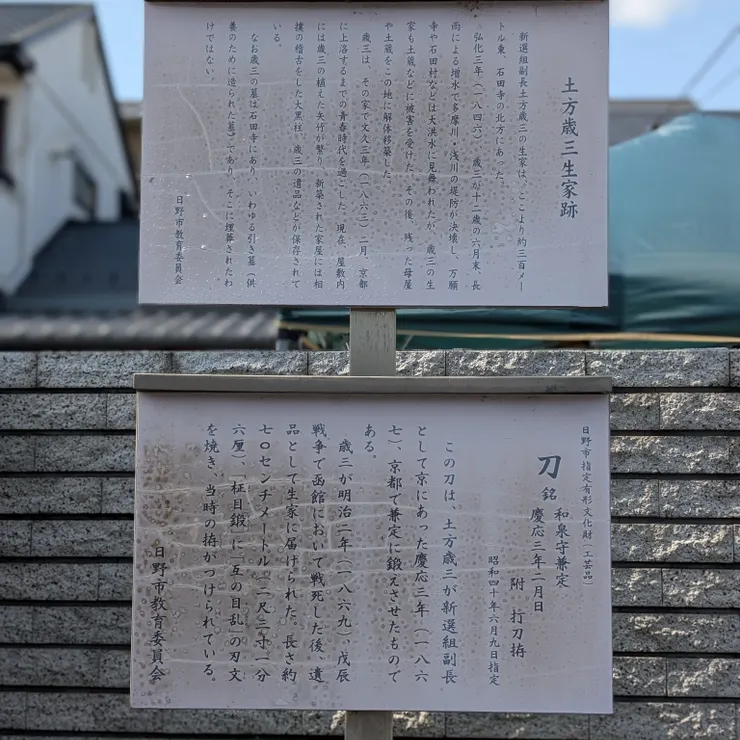 土方歳三生家跡
新選組副長土方歳三の生家は、ここより約三百メー
トル東、石田寺の北方にあった。
弘化三年（一八四六）、歳三が十二歳の六月末、長
雨による増水で多摩川・浅川の堤防が決壊し、万願
寺や石田村などは大洪水に見舞われたが、歳三の生
家も土蔵などに被害を受けた。その後、残った母屋
や土蔵をこの地に解体移築した。
歳三は、その家で文久三年（一八六三）二月、京都
に上洛するまでの青春時代を過ごした。現在、屋敷内
には歳三の植えた矢竹が繁り、新築された家屋には相
撲の稽古をした大黒柱、歳三の遺品などが保存されて
いる。
なお歳三の墓は石田寺にあり、いわゆる引き墓（供
養のために造られた墓）であり、そこに埋葬されたわ
けではない。
日野市教育委員会
日野市指定有形文化財（工芸品）
刀 銘 和泉守兼定
慶応三年二月日
附 打刀拵
昭和四十年六月九日指定
この刀は、土方歳三が新選組副長
として京にあった慶応三年（一八六
七）、京都で兼定に鍛えさせたもので
ある。
歳三が明治二年（一八六九）戊辰
戦争で函館において戦死した後、遺
品として生家に届けられた。長さ約
七〇センチメートル（二尺三寸一分
六厘）、「柾目鍛」に「互の目乱」の刃文
を焼き、当時の拵がつけられている。
日野市教育委員会